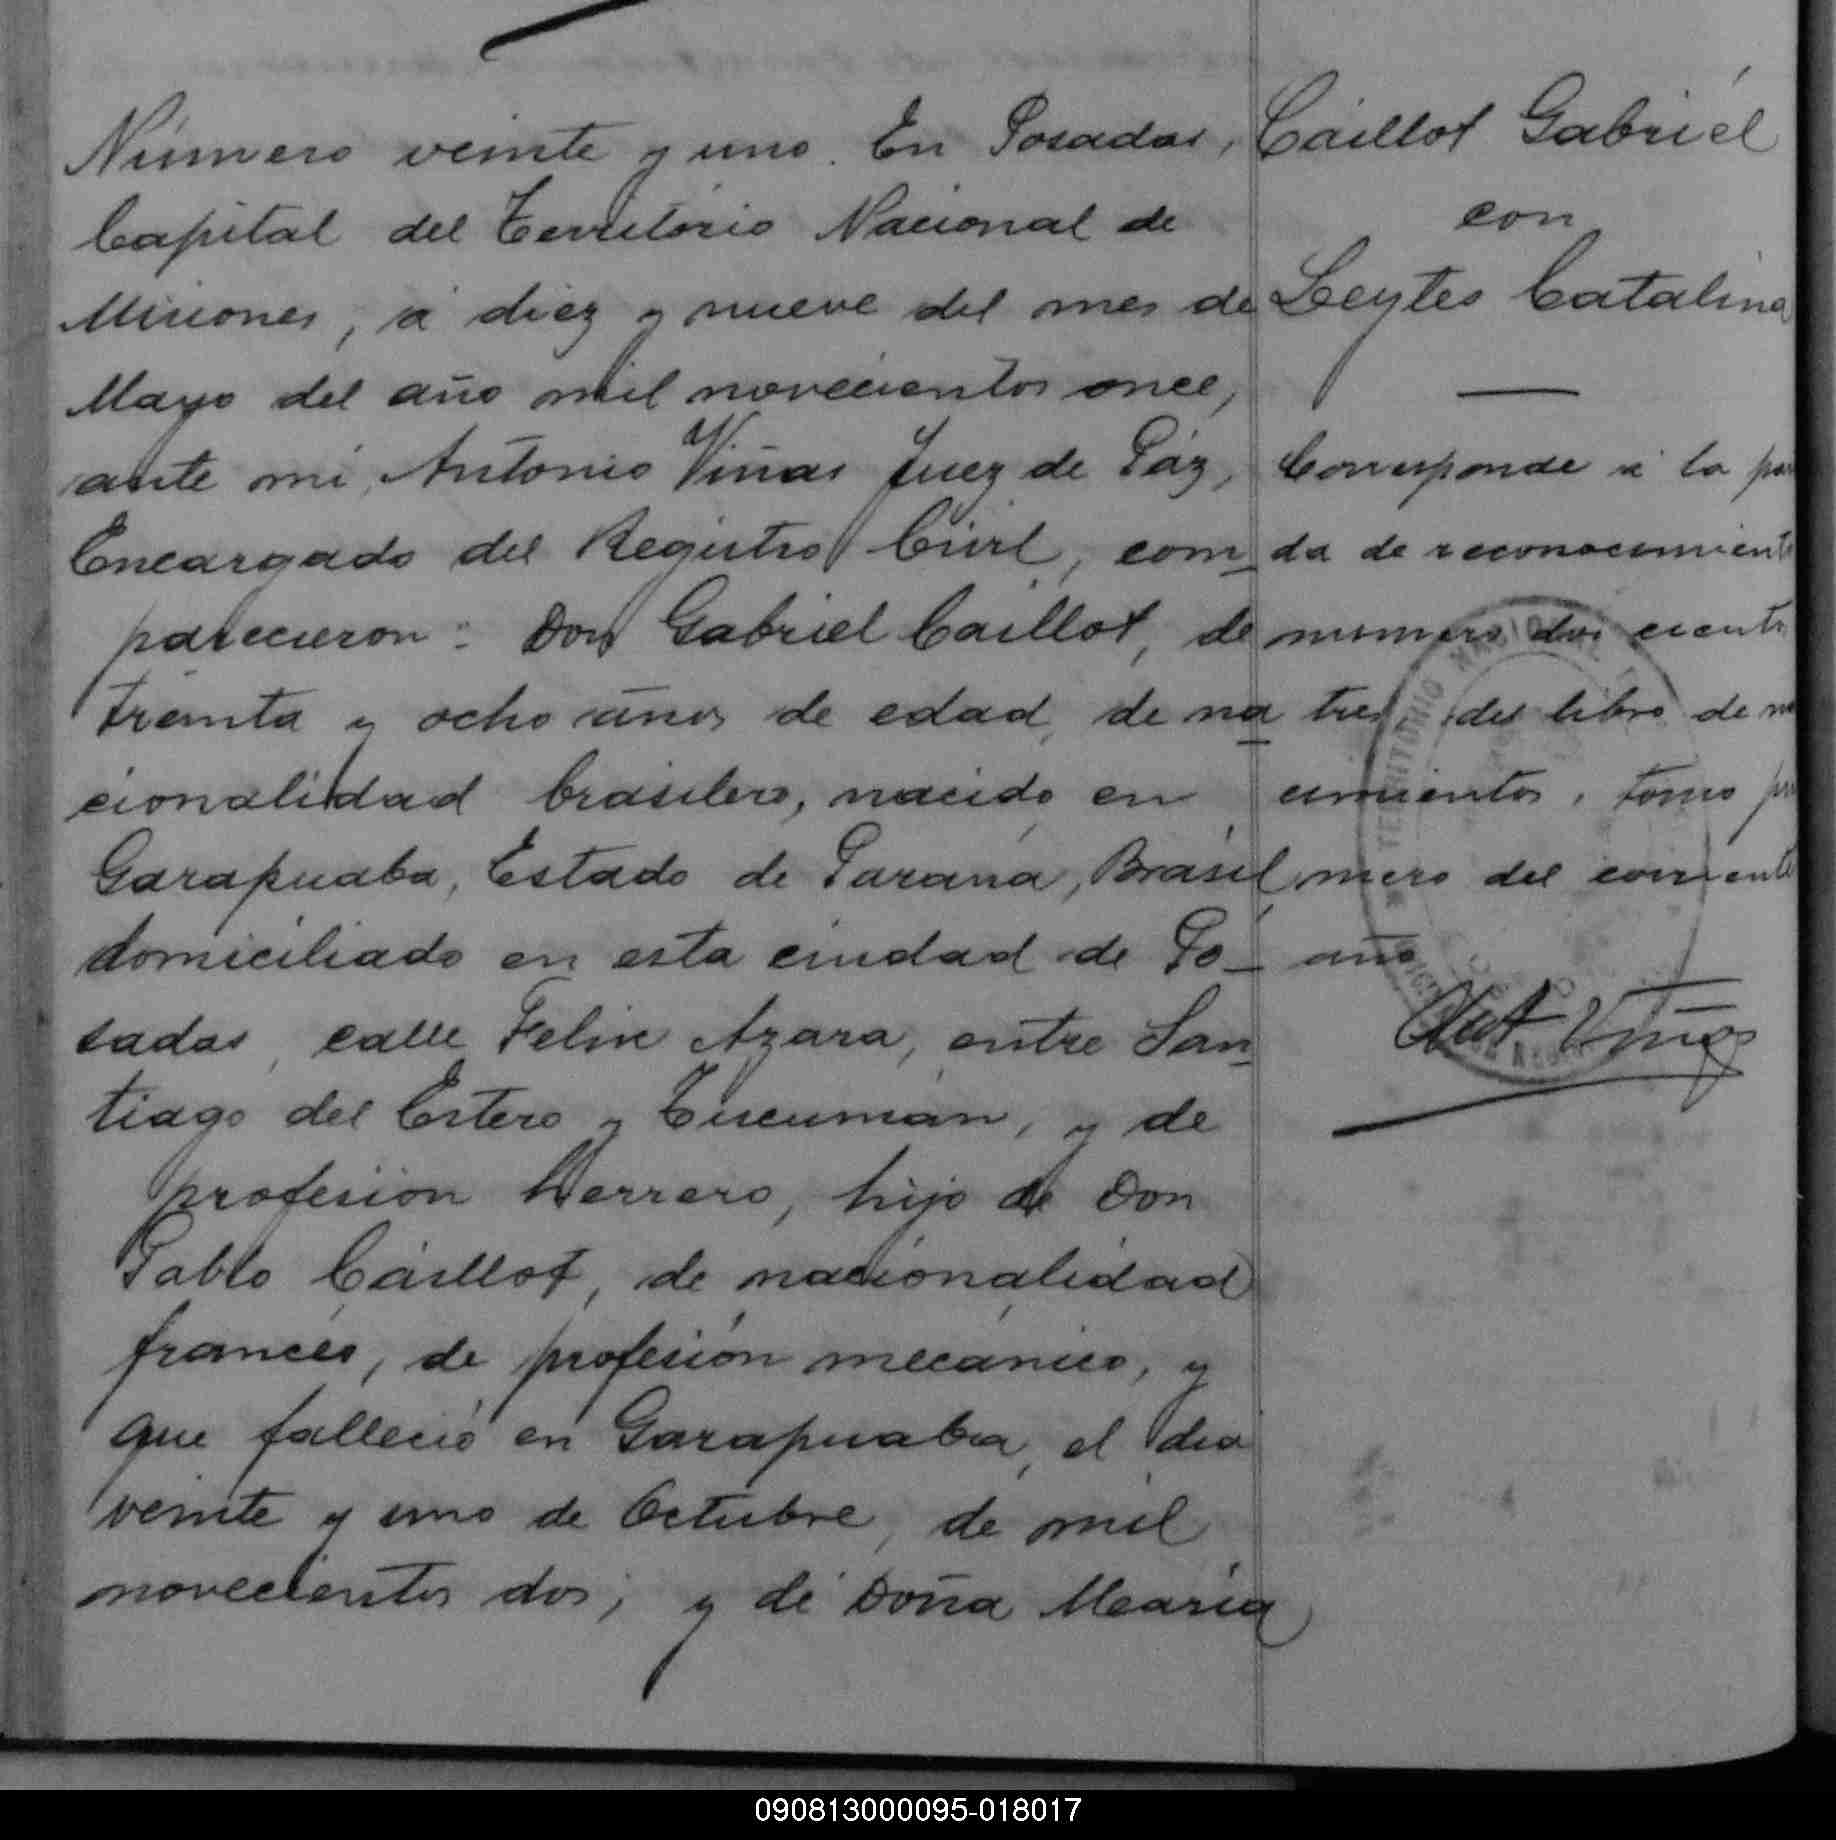 Número veinte y uno. En Posadas,
Capital del Territorio Nacional de
Misiones, á diez y nueve del mes de
Mayo del año mil novecientos once,
ante mi, Antonio Viñas Juez de Páz,
Encargado del Registro Civil, com-
parecieron: Don Gabriel Caillot, de
treinta y ocho años de edad, de na
cionalidad brasilero, nacido en
Garapuaba, Estado de Paraná, Brasil
domiciliado en esta ciudad de Po-
sadas, calle Felix Azara, entre San
tiago del Estero y Tucumán, y de
profesión herrero, hijo de Don
Pablo Caillot, de nacionalidad
francés, de profesión mecánico, y
que falleció en Garapuaba, el dia
veinte y uno de Octubre, de mil
novecientos dos; y de Doña Maria
Caillot Gabriel
con
Leytes Catalina
Corresponde á la par
da de reconocimient
numero dos cient
tres del libro de na
cimientos, tomo pri
mero del corriente
año
Ant Viñas
TERRITORIO NACIONAL
090813000095-018017